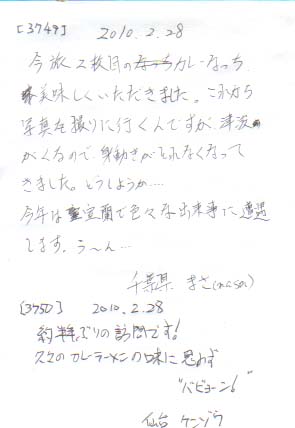 [3749] 2010.2.28
今旅2枚目のカレーなっち
美味しくいただきました。これから
写真を撮りに行くんですが、津波
がくるので、身動きがとれなくなって
きました。どうしようか…
今年は室蘭で色々な出来事に遭遇
します。う〜ん…
千葉県 まさ(masa)
[3750] 2010.2.28
約半年ぶりの訪問です!
久々のカレーラーメンの味に思わず
"バビョーン!"
仙台 ケンゾウ